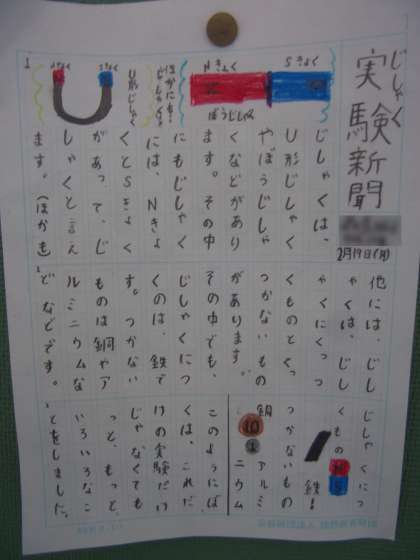 じしゃく
実験新聞
2月19日(月)
Nきょく
Sきょく
ぼうじしゃく
ほかにも!
U形じしゃく
じしゃくは、
U形じしゃく
やぼうじしゃ
くなどがあり
ます。その中
にもじしゃく
には、Nきょ
くとSきょく
があって、じ
しゃくと言え
ます。(ほかも)
他には、じし
ゃくは、じし
ゃくにくっつ
くものとくっ
つかないもの
があります。
その中でも、
じしゃくにつ
くのは、鉄で
す。つかない
ものは銅やア
ルミニウムな
どなどです。
じしゃくにつ
くもの
N
S
鉄!
つかないもの
銅
10
アルミ
1
ニウム
このようにぼ
くは、これだ
けの実験だけ
じゃなくても
っと、もっと、
いろいろなこ
とをしました。